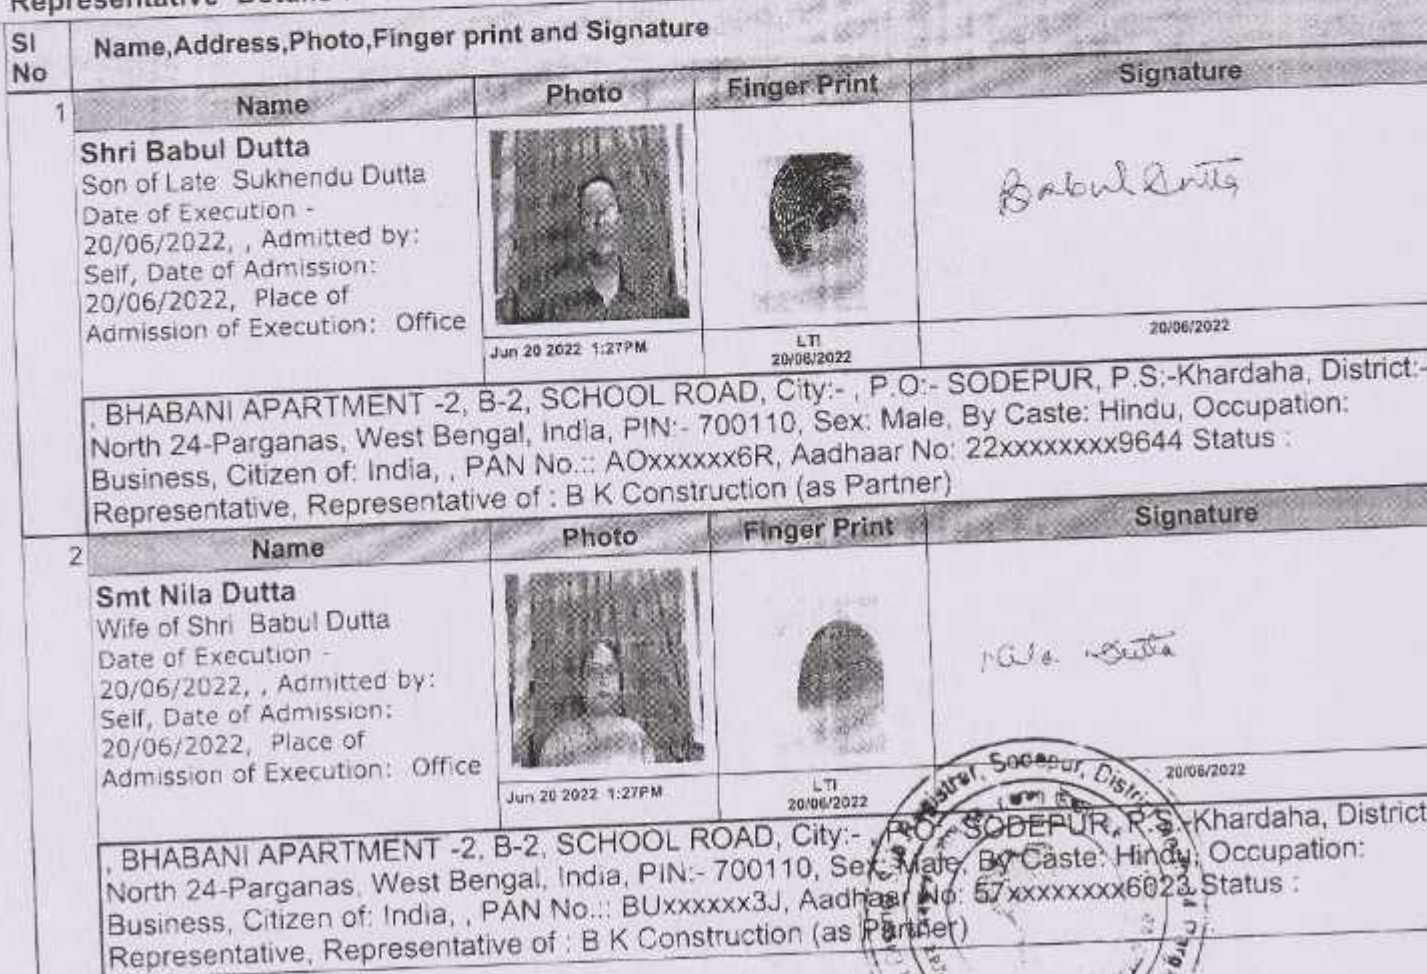 Representative
SI No
Name,Address,Photo,Finger print and Signature
1
Name Photo Finger Print Signature
Shri Babul Dutta
Son of Late Sukhendu Dutta
Date of Execution -
20/06/2022, , Admitted by:
Self, Date of Admission:
20/06/2022, Place of
Admission of Execution: Office
Jun 20 2022 1:27PM
LTI
20/06/2022
Babul Dutta
20/06/2022
, BHABANI APARTMENT -2, B-2, SCHOOL ROAD, City:- , P.O:- SODEPUR, P.S:-Khardaha, District:-
North 24-Parganas, West Bengal, India, PIN:- 700110, Sex: Male, By Caste: Hindu, Occupation:
Business, Citizen of: India, , PAN No.:: AOxxxxxx6R, Aadhaar No: 22xxxxxxxx9644 Status :
Representative, Representative of : B K Construction (as Partner)
2
Name Photo Finger Print Signature
Smt Nila Dutta
Wife of Shri Babul Dutta
Date of Execution -
20/06/2022, , Admitted by:
Self, Date of Admission:
20/06/2022, Place of
Admission of Execution: Office
Jun 20 2022 1:27PM
LTI
20/06/2022
Nila Dutta
20/06/2022
, BHABANI APARTMENT -2, B-2, SCHOOL ROAD, City:- , P.O:- SODEPUR, P.S:-Khardaha, District
North 24-Parganas, West Bengal, India, PIN:- 700110, Sex: Male, By Caste: Hindu, Occupation:
Business, Citizen of: India, , PAN No.:: BUxxxxxx3J, Aadhaar No: 57xxxxxxxx6023 Status :
Representative, Representative of : B K Construction (as Partner)
Registrar, Sodepur,